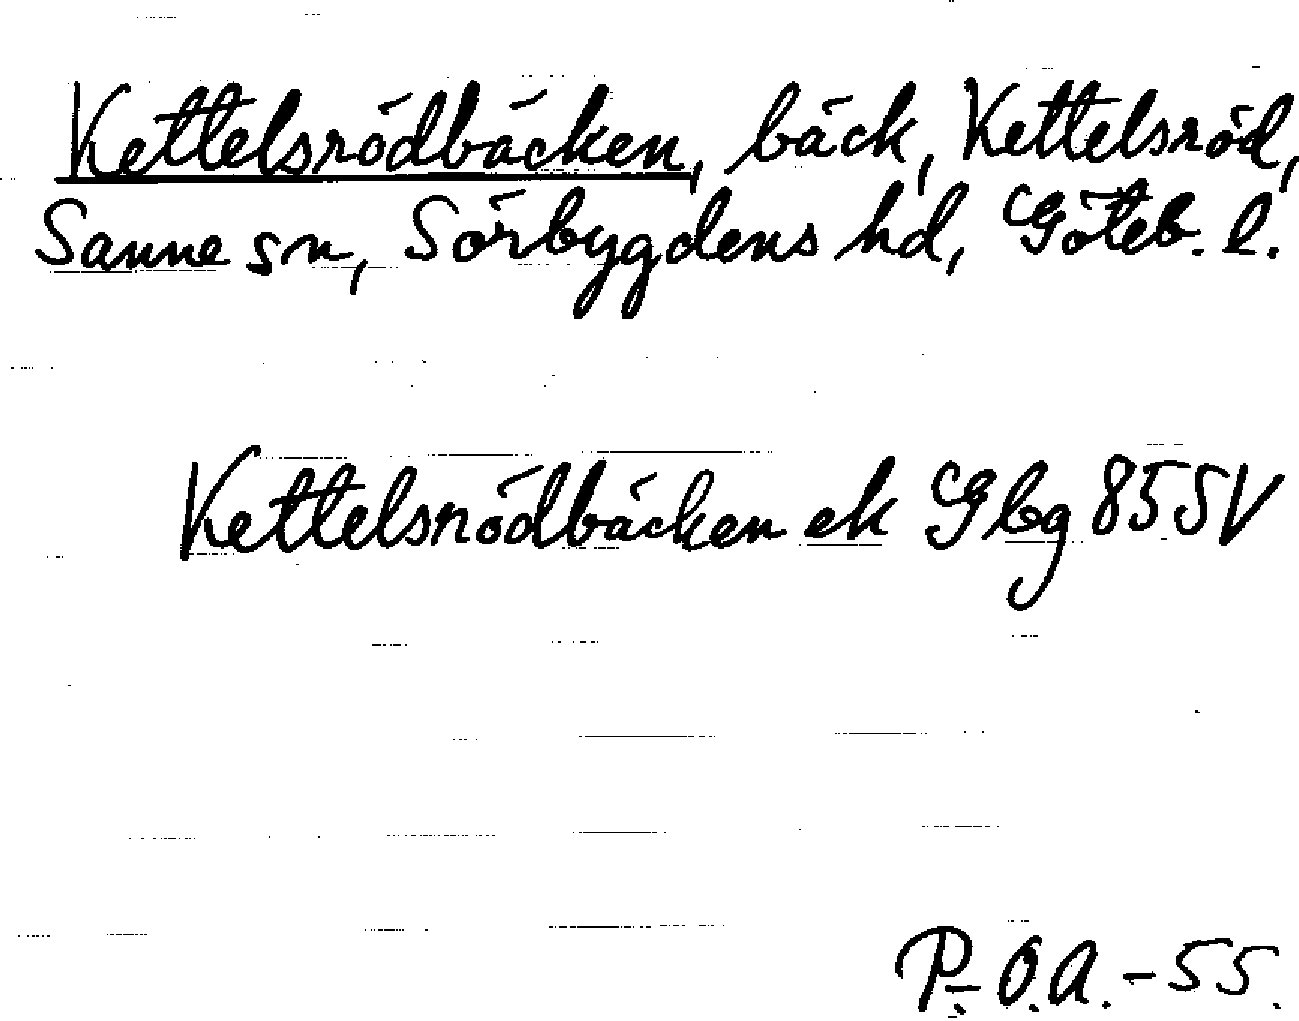 Kettelsrödbäcken, bäck, Kettelsröd,
Sanne sn, Sörbygdens hd, Göteb. l.
Kettelsrödbäcken ek Gbg 855V
P.-O.A.-55.